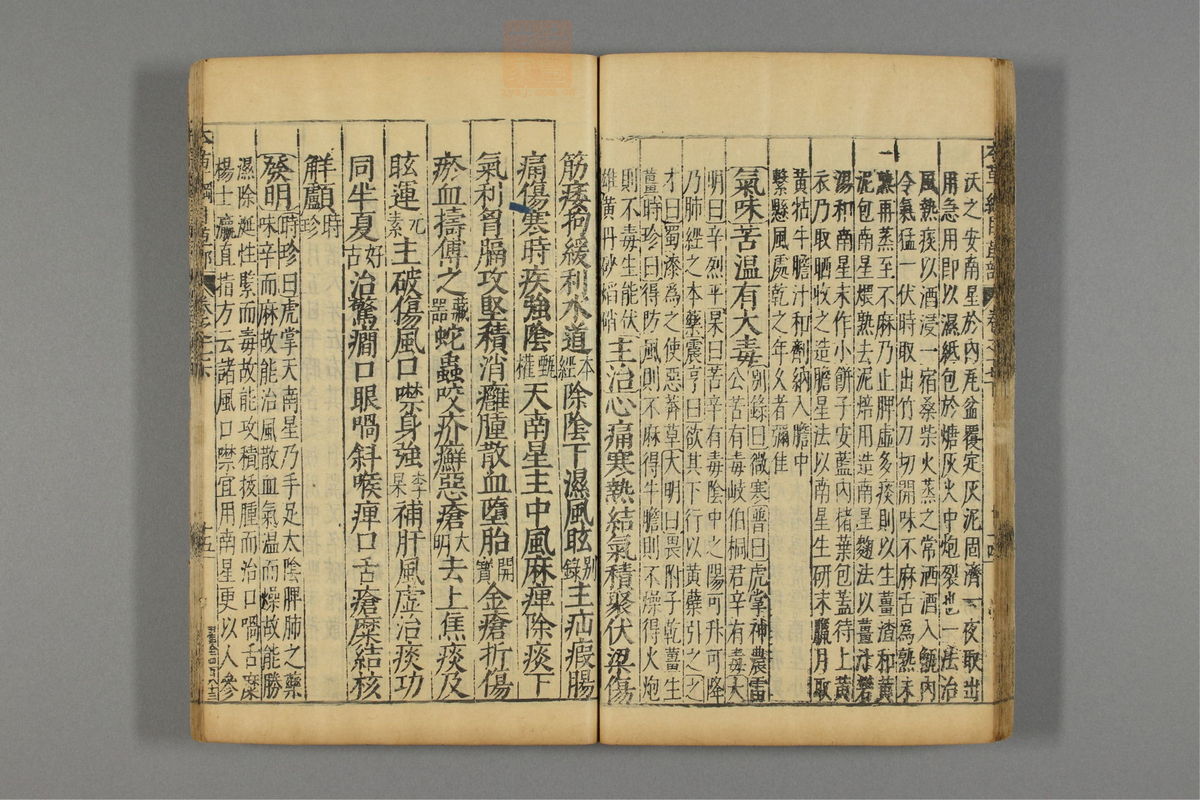 沃之安南星於內瓦盆覆定灰泥固濟一夜取出
用急用即以濕紙包於煻灰火中炮裂也一法治
風熱痰以酒浸一宿桑柴火蒸之常洒酒入甑內
令氣猛一伏時取出竹刀切開味不麻舌爲熟未
熟再蒸至不麻乃止脾虛多痰則以生薑渣和黃
泥包南星煨熟去泥焙用造南星麴法以薑汁礬
湯和南星末作小餅子安藍內楮葉包蓋待上黃
衣乃取晒收之造膽星法以南星生研末臘月取
黃牯牛膽汁和劑納入膽中
繫懸風處乾之年久者彌佳
氣味苦温有大毒
別錄曰微寒普曰虎掌神農雷
公苦有毒岐伯桐君辛有毒大
明曰辛烈平杲曰苦辛有毒陰中之陽可升可降
乃肺經之本藥震亨曰欲其下行以黃蘗引之之
才曰蜀漆爲之使惡莽草大明曰畏附子乾薑生
薑時珍曰得防風則不麻得牛膽則不燥得火炮
則不毒生能伏
雄黃丹砂焰硝
主治心痛寒熱結氣積聚伏梁傷
筋痿拘緩利水道
本經
甄權
除陰下濕風眩
別錄
主疝瘕腸
痛傷寒時疾強陰
天南星主中風麻痺除痰下
氣利胷膈攻堅積消癰腫散血墮胎
開寶
金瘡折傷
瘀血擣傅之
藏器
蛇蟲咬疥癬惡瘡
大明
去上焦痰及
眩運
元素
主破傷風口噤身強
李杲
補肝風虛治痰功
同半夏
好古
治驚癇口眼喎斜喉痺口舌瘡糜結核
解顱
時珍
發明
時珍曰虎掌天南星乃手足太陰脾肺之藥
味辛而麻故能治風散血氣温而燥故能勝
濕除涎性緊而毒故能攻積拔腫而治口喎舌糜
楊士瀛直指方云諸風口噤宜用南星更以人參
本草綱目草部
卷之十七
十五